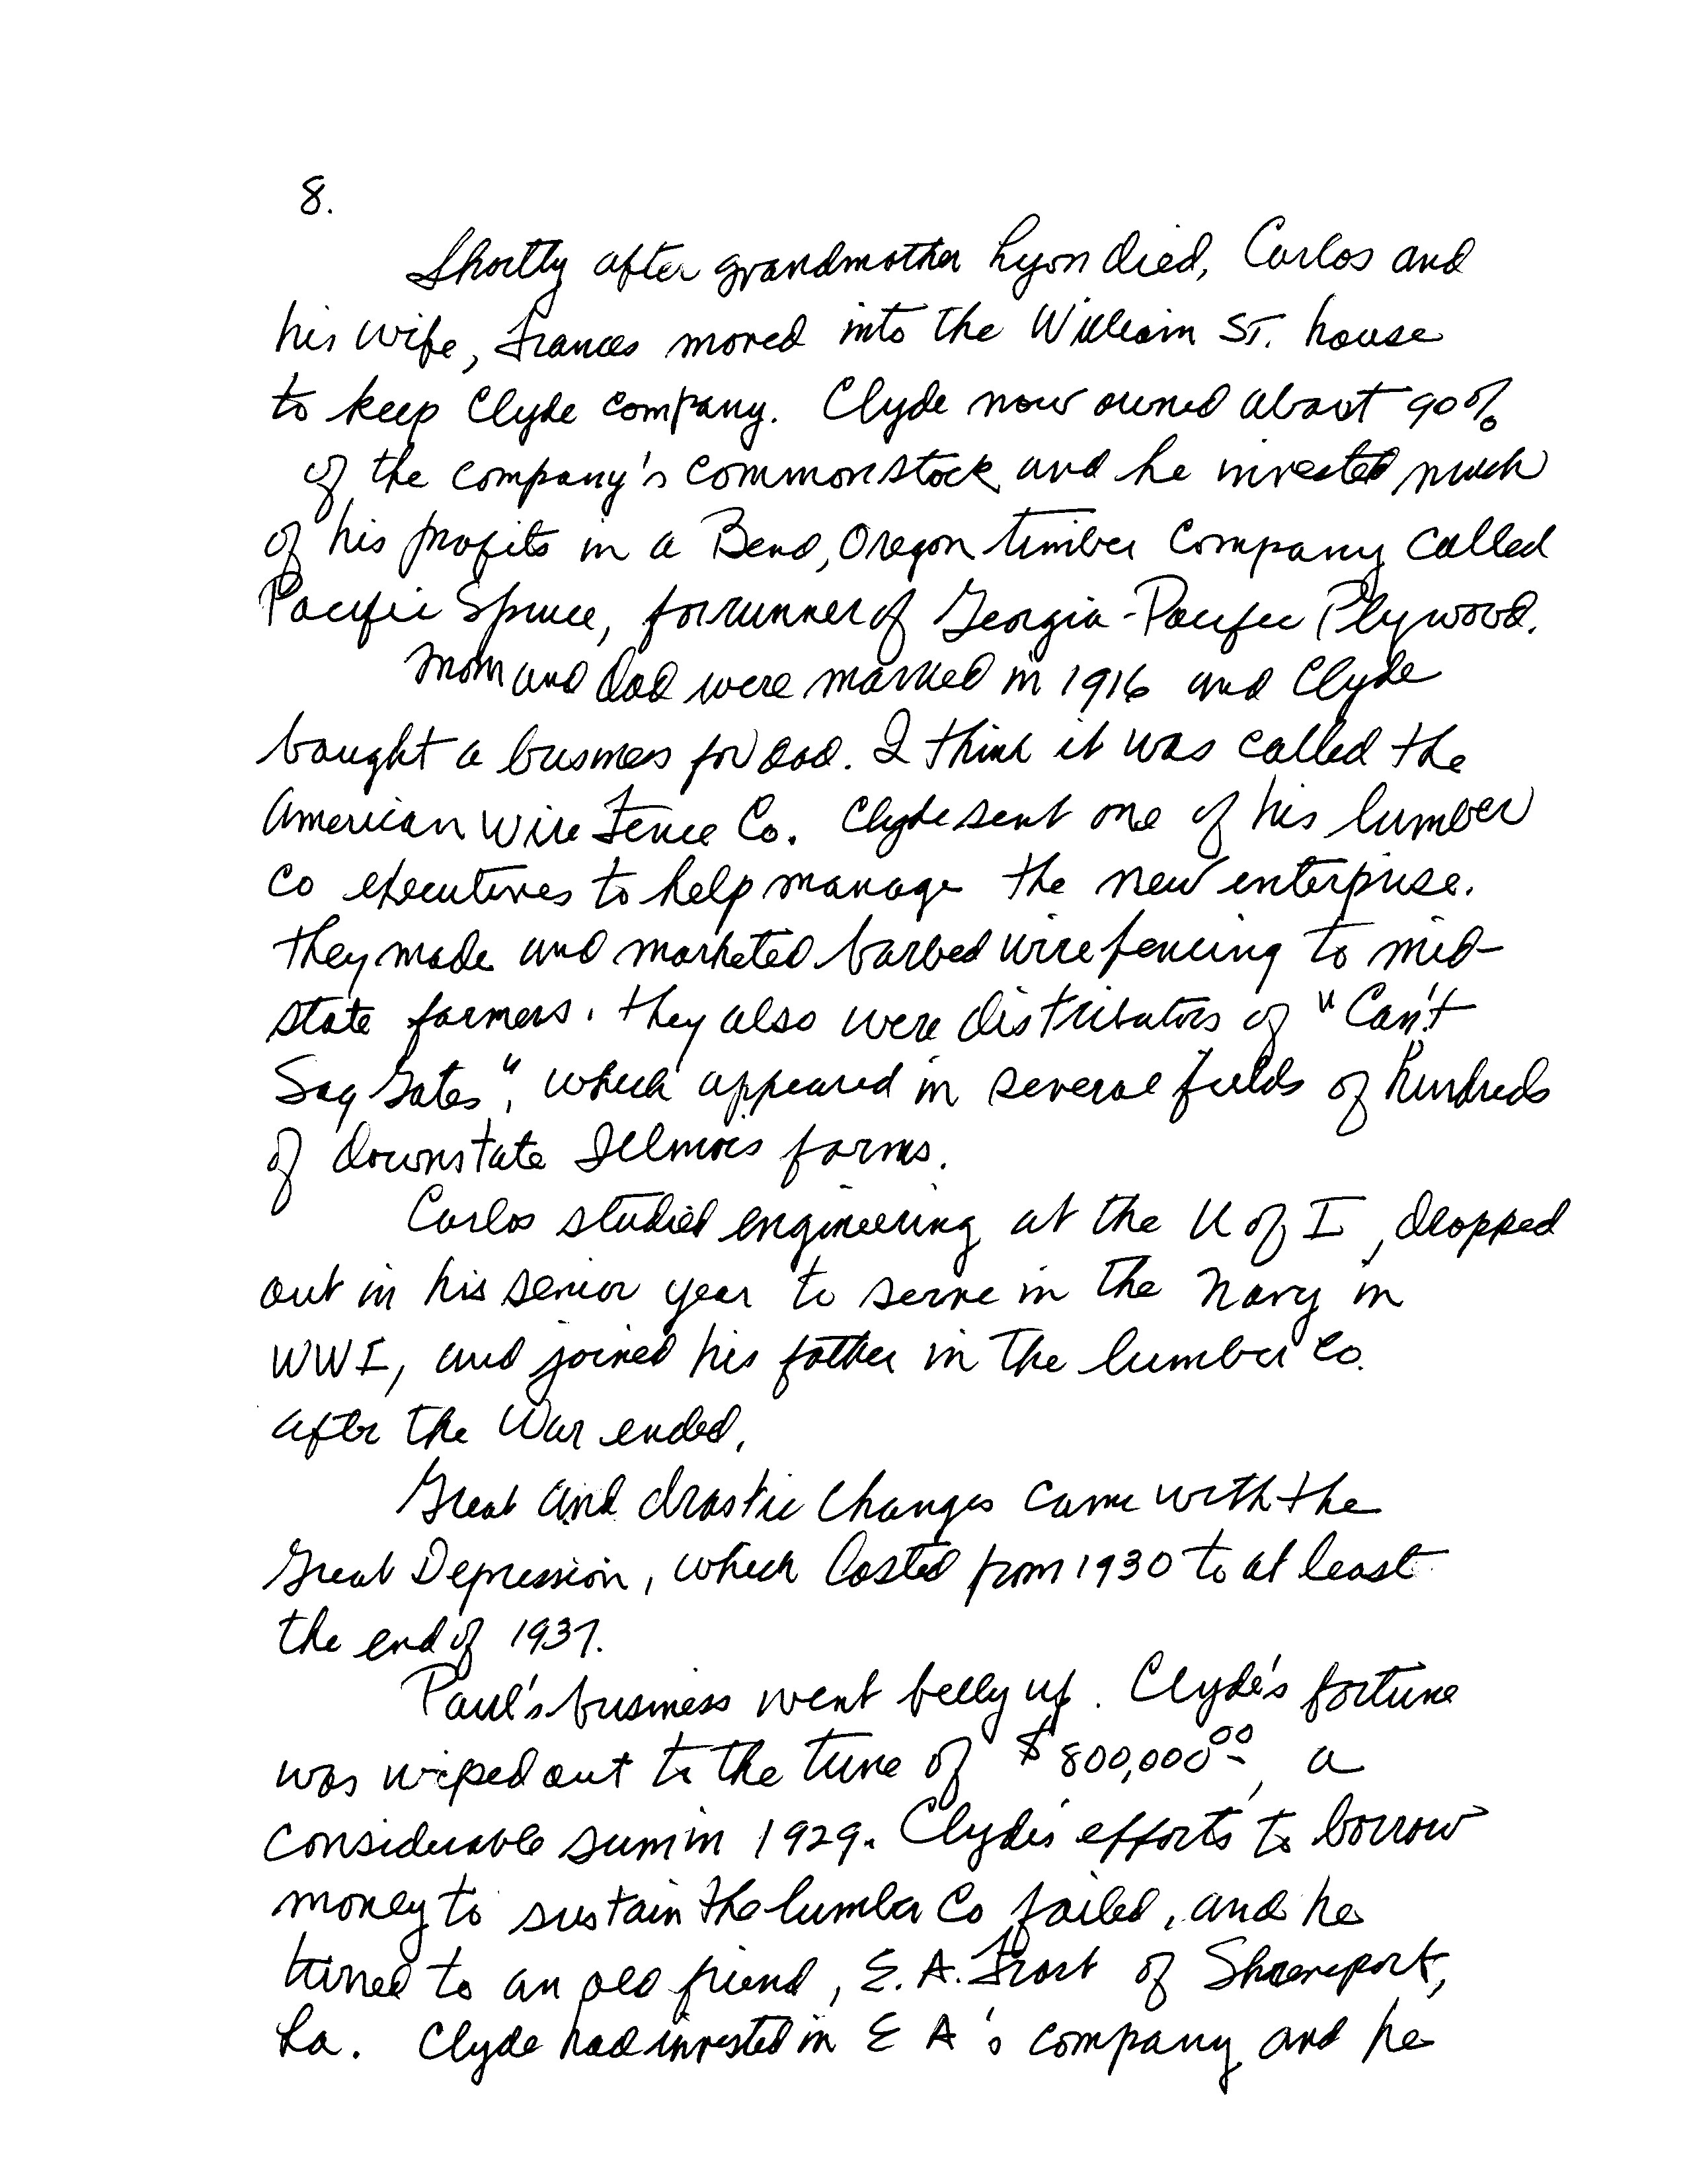 8.
Shortly after grandmother Lyon died, Carlos and
his wife, Frances moved into the William ST. house
to keep Clyde company. Clyde now owned about 90%
of the company's common stock and he invested much
of his profits in a Bend, Oregon timber company called
Pacific Spruce, forrunner of Georgia-Pacific Plywood.
Mom and dad were married in 1916 and Clyde
bought a business for dad. I think it was called the
American Wire Fence Co. Clyde sent one of his lumber
Co executives to help manage the new enterprise.
They made and marketed barbed wire fencing to mid-
state farmers. They also were distributors of "Can't
Sag Gates", which appeared in several fields of hundreds
of downstate Illinois farms.
Carlos studied engineering at the U of I, dropped
out in his senior year to serve in the Navy in
WWI, and joined his father in the lumber Co.
after the War ended.
Great and drastic changes came with the
Great Depression, which lasted from 1930 to at least
the end of 1937.
Paul's business went belly up. Clyde's fortune
was wiped out to the tune of $800,000.00, a
considerable sum in 1929. Clyde's efforts to borrow
money to sustain the lumber Co failed, and he
turned to an old friend, E. A. Frost of Shreveport,
La. Clyde had invested in E A's company and he